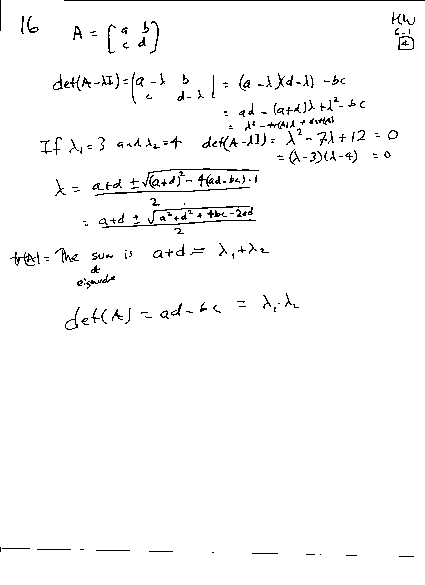 16
HW
6-1
4
A = [a b
c d]
det(A-λI) = |a-λ b
c d-λ| = (a-λ)(d-λ) - bc
= ad - (a+d)λ + λ² - bc
= λ² - tr(A)λ + det(A)
If λ₁=3 and λ₂=4 det(A-λI) = λ² - 7λ + 12 = 0
= (λ-3)(λ-4) = 0
λ = a+d ± √(a+d)² - 4(ad-bc)·1
2
= a+d ± √a²+d²+4bc-2ad
2
tr(A) = The sum is a+d = λ₁+λ₂
of
det(A) = ad-bc = λ₁·λ₂